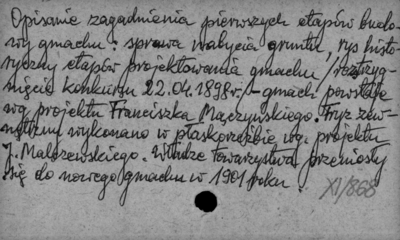 Opisanie zagadnienia pierwszych etapów budo-
wy gmachu: sprawa nabycia gruntu, rys histo-
ryczny etapów projektowania gmachu, rozstrzyg-
nięcie konkursu 22.04.1898 r. - gmach powstaje
wg. projektu Franciszka Mączyńskiego. Fryz zew-
nętrzny wykonano w płaskorzeźbie wg. projektu
J. Malczewskiego. Władze towarzystwa przeniosły
się do nowego gmachu w 1901 roku.
XI/868